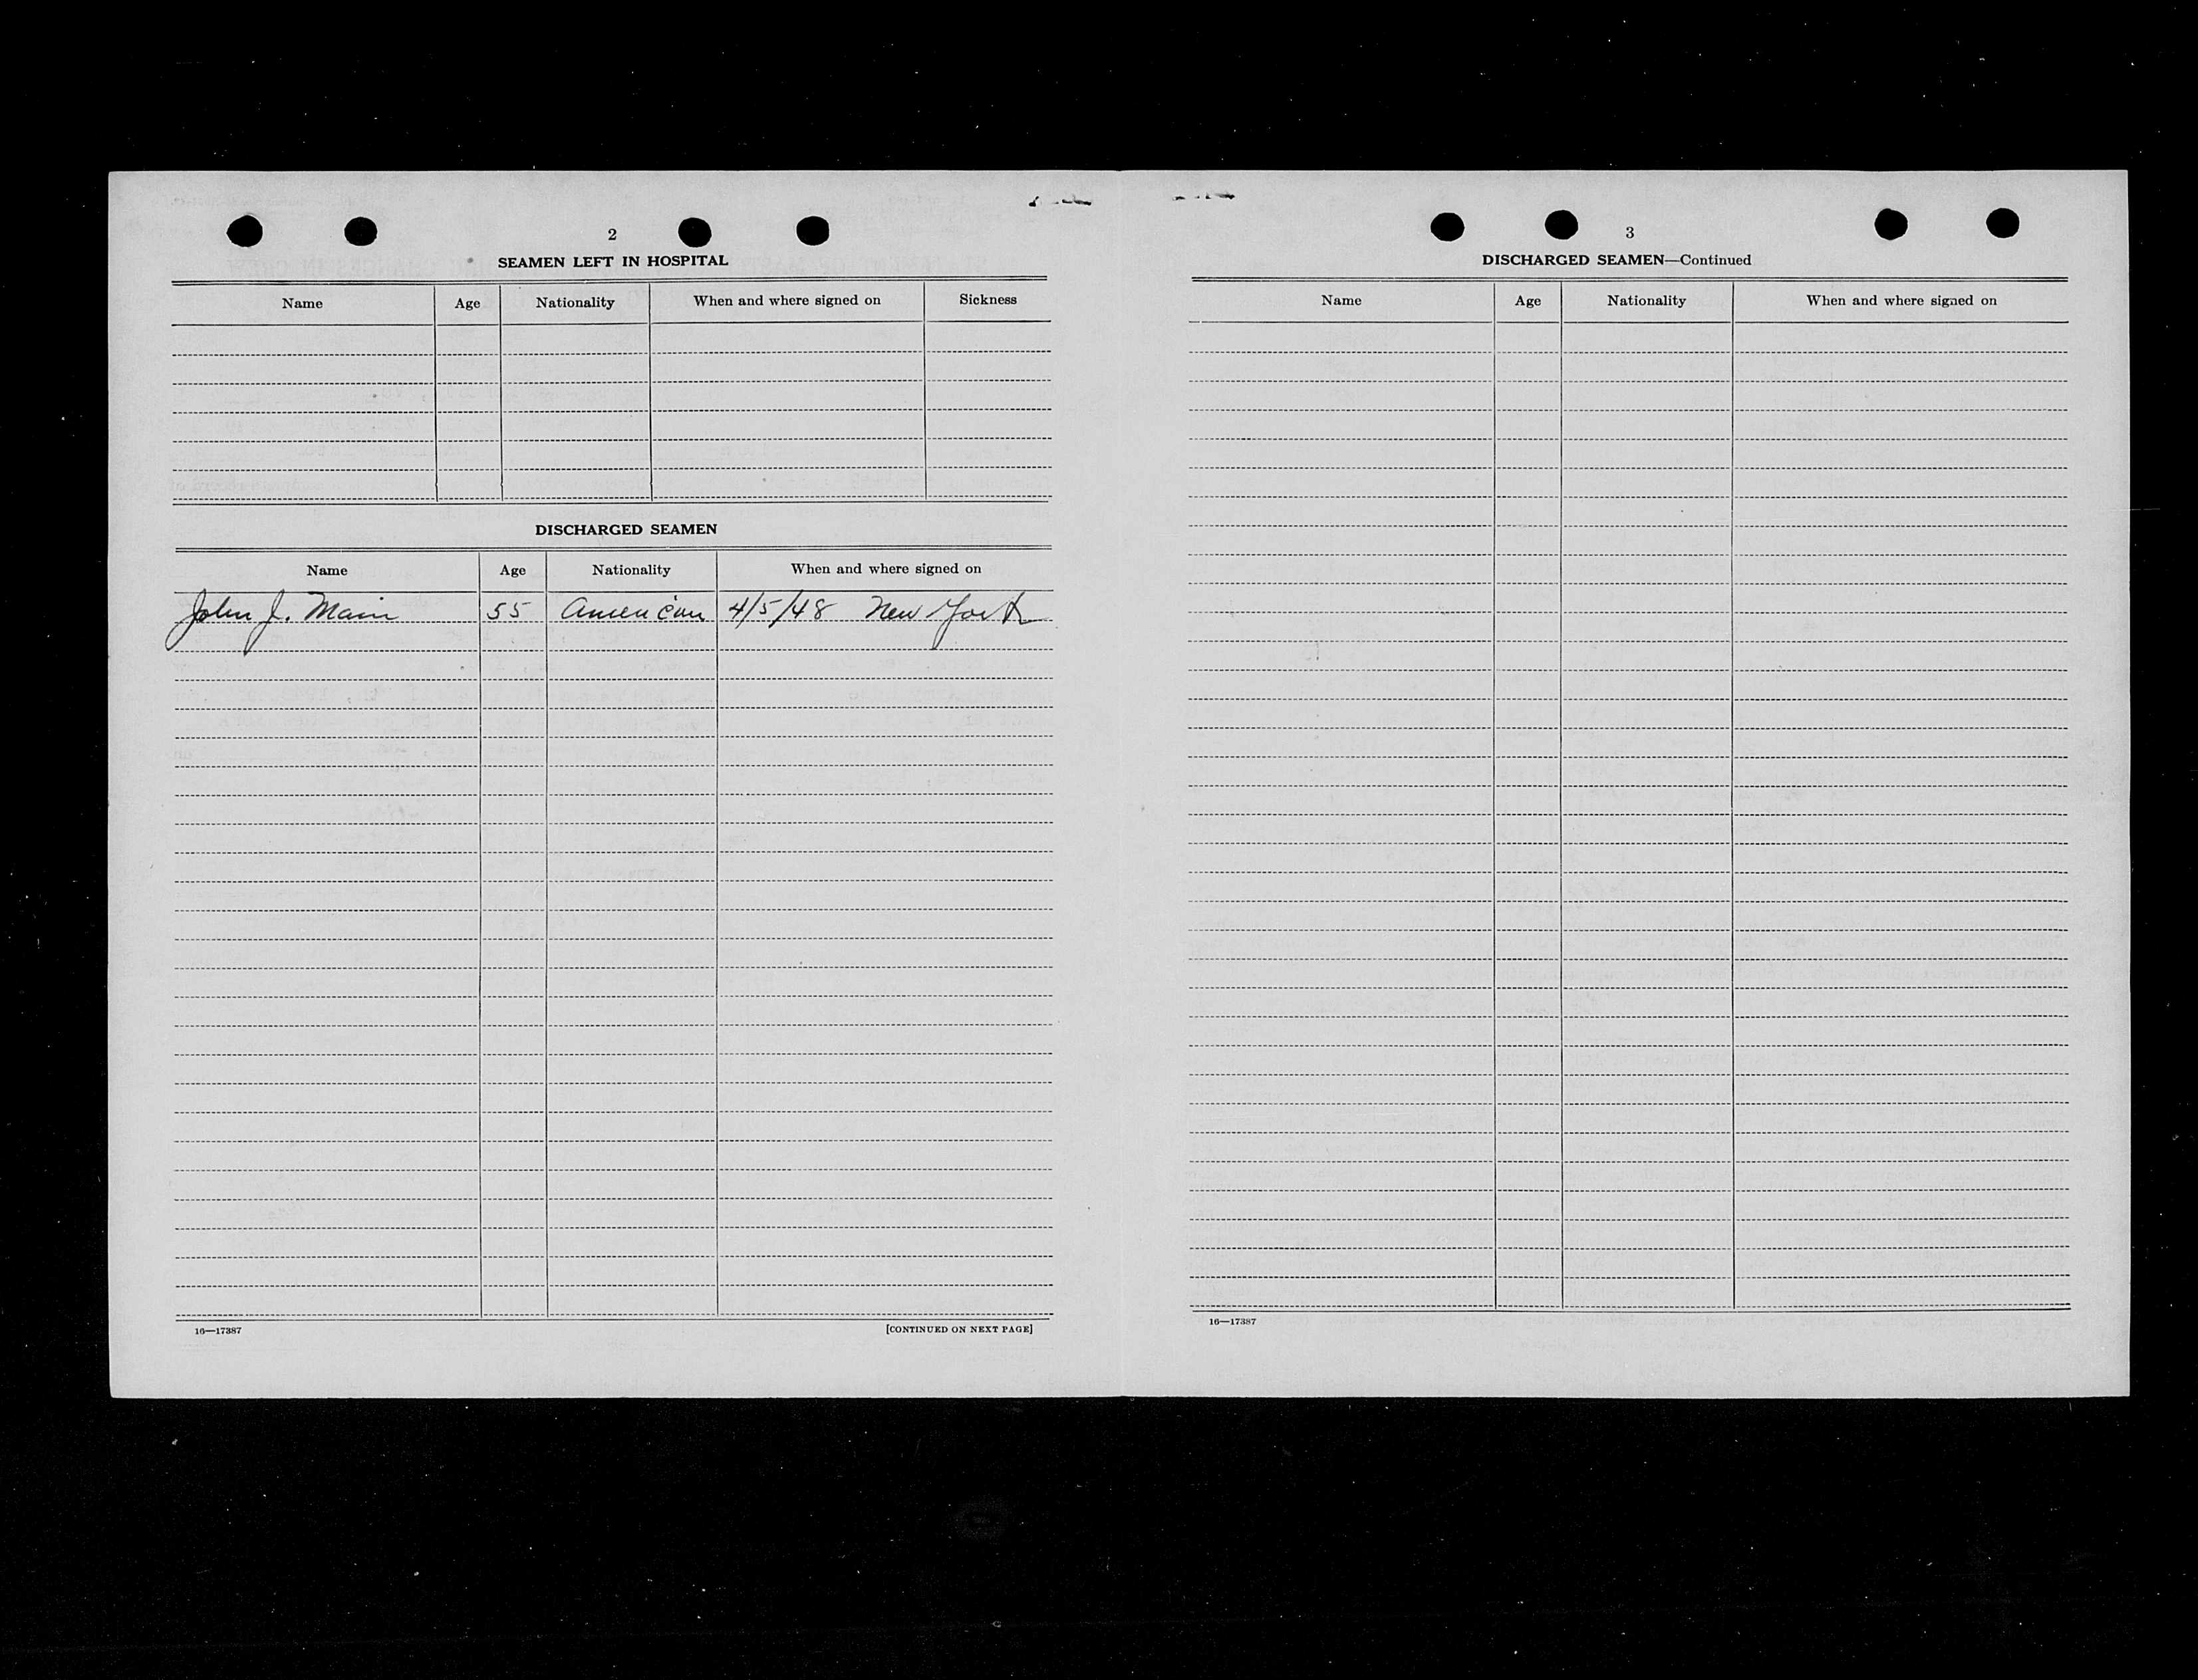 2
SEAMEN LEFT IN HOSPITAL
Name Age Nationality When and where signed on Sickness
DISCHARGED SEAMEN
Name Age Nationality When and where signed on
John J. Main 55 American 4/5/48 New York
16—17387 [CONTINUED ON NEXT PAGE]
3
DISCHARGED SEAMEN—Continued
Name Age Nationality When and where signed on
16—17387